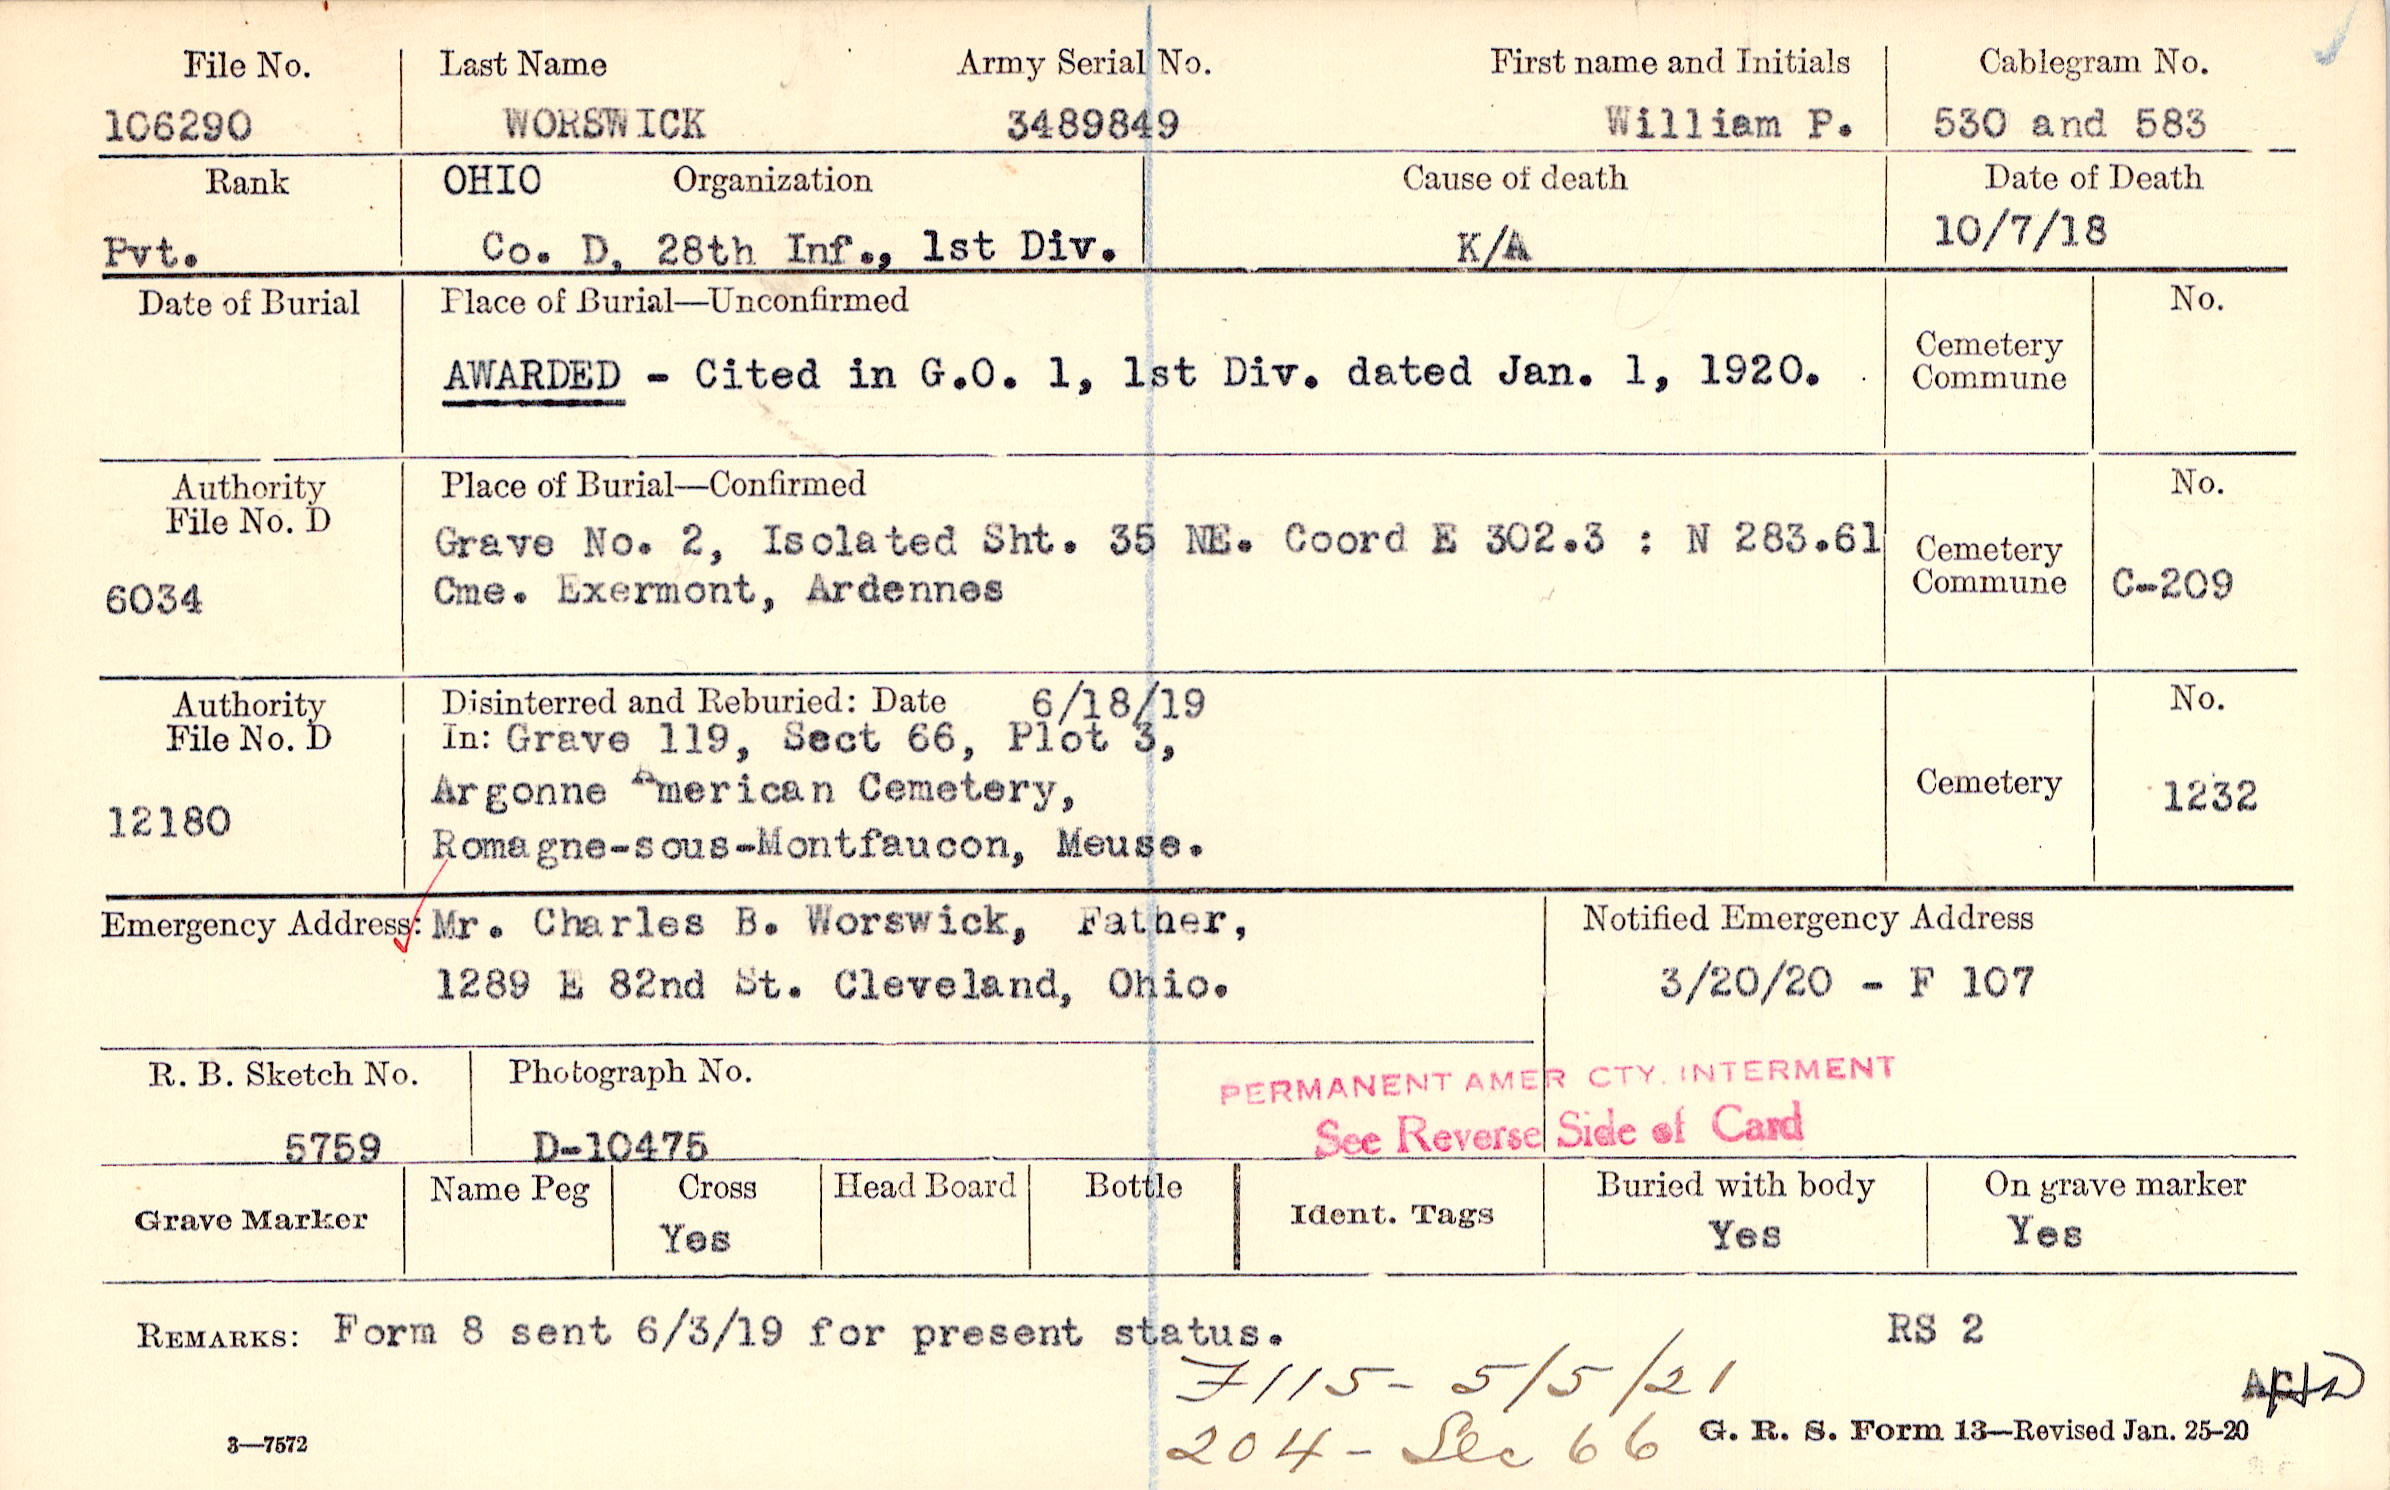 File No. Last Name Army Serial No. First name and Initials Cablegram No.
106290 WORSWICK 3489849 William P. 530 and 583
Rank OHIO Organization Cause of death Date of Death
Pvt. Co. D, 28th Inf., 1st Div. K/A 10/7/18
Date of Burial Place of Burial—Unconfirmed No.
Cemetery
Commune
AWARDED - Cited in G.O. 1, 1st Div. dated Jan. 1, 1920.
Authority Place of Burial—Confirmed No.
File No. D
6034
Grave No. 2, Isolated Sht. 35 NE. Coord E 302.3 : N 283.61
Cme. Exermont, Ardennes
Cemetery
Commune C-209
Authority Disinterred and Reburied: Date 6/18/19 No.
File No. D In: Grave 119, Sect 66, Plot 3,
12180
Argonne American Cemetery, Cemetery 1232
Romagne-sous-Montfaucon, Meuse.
Emergency Address: Mr. Charles B. Worswick, Father, Notified Emergency Address
1289 E 82nd St. Cleveland, Ohio. 3/20/20 - F 107
R. B. Sketch No. Photograph No.
5759 D-10475
PERMANENT AMER CTY. INTERMENT
See Reverse Side of Card
Grave Marker Name Peg Cross Head Board Bottle Ident. Tags Buried with body On grave marker
Yes Yes Yes
REMARKS: Form 8 sent 6/3/19 for present status. RS 2
F115- 5/5/21
204 - Sec 66
3—7572 G. R. S. Form 13—Revised Jan. 25-20